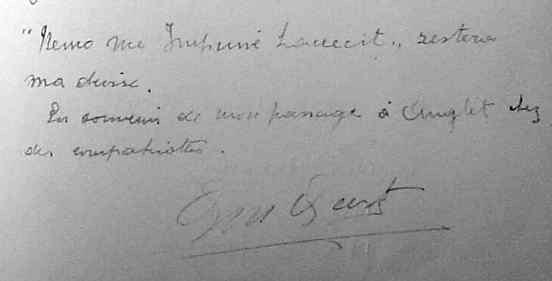 "Nemo me Impune Lacecit", restera
ma devise.
En souvenir de mon passage à Anglet chez
des compatriotes.